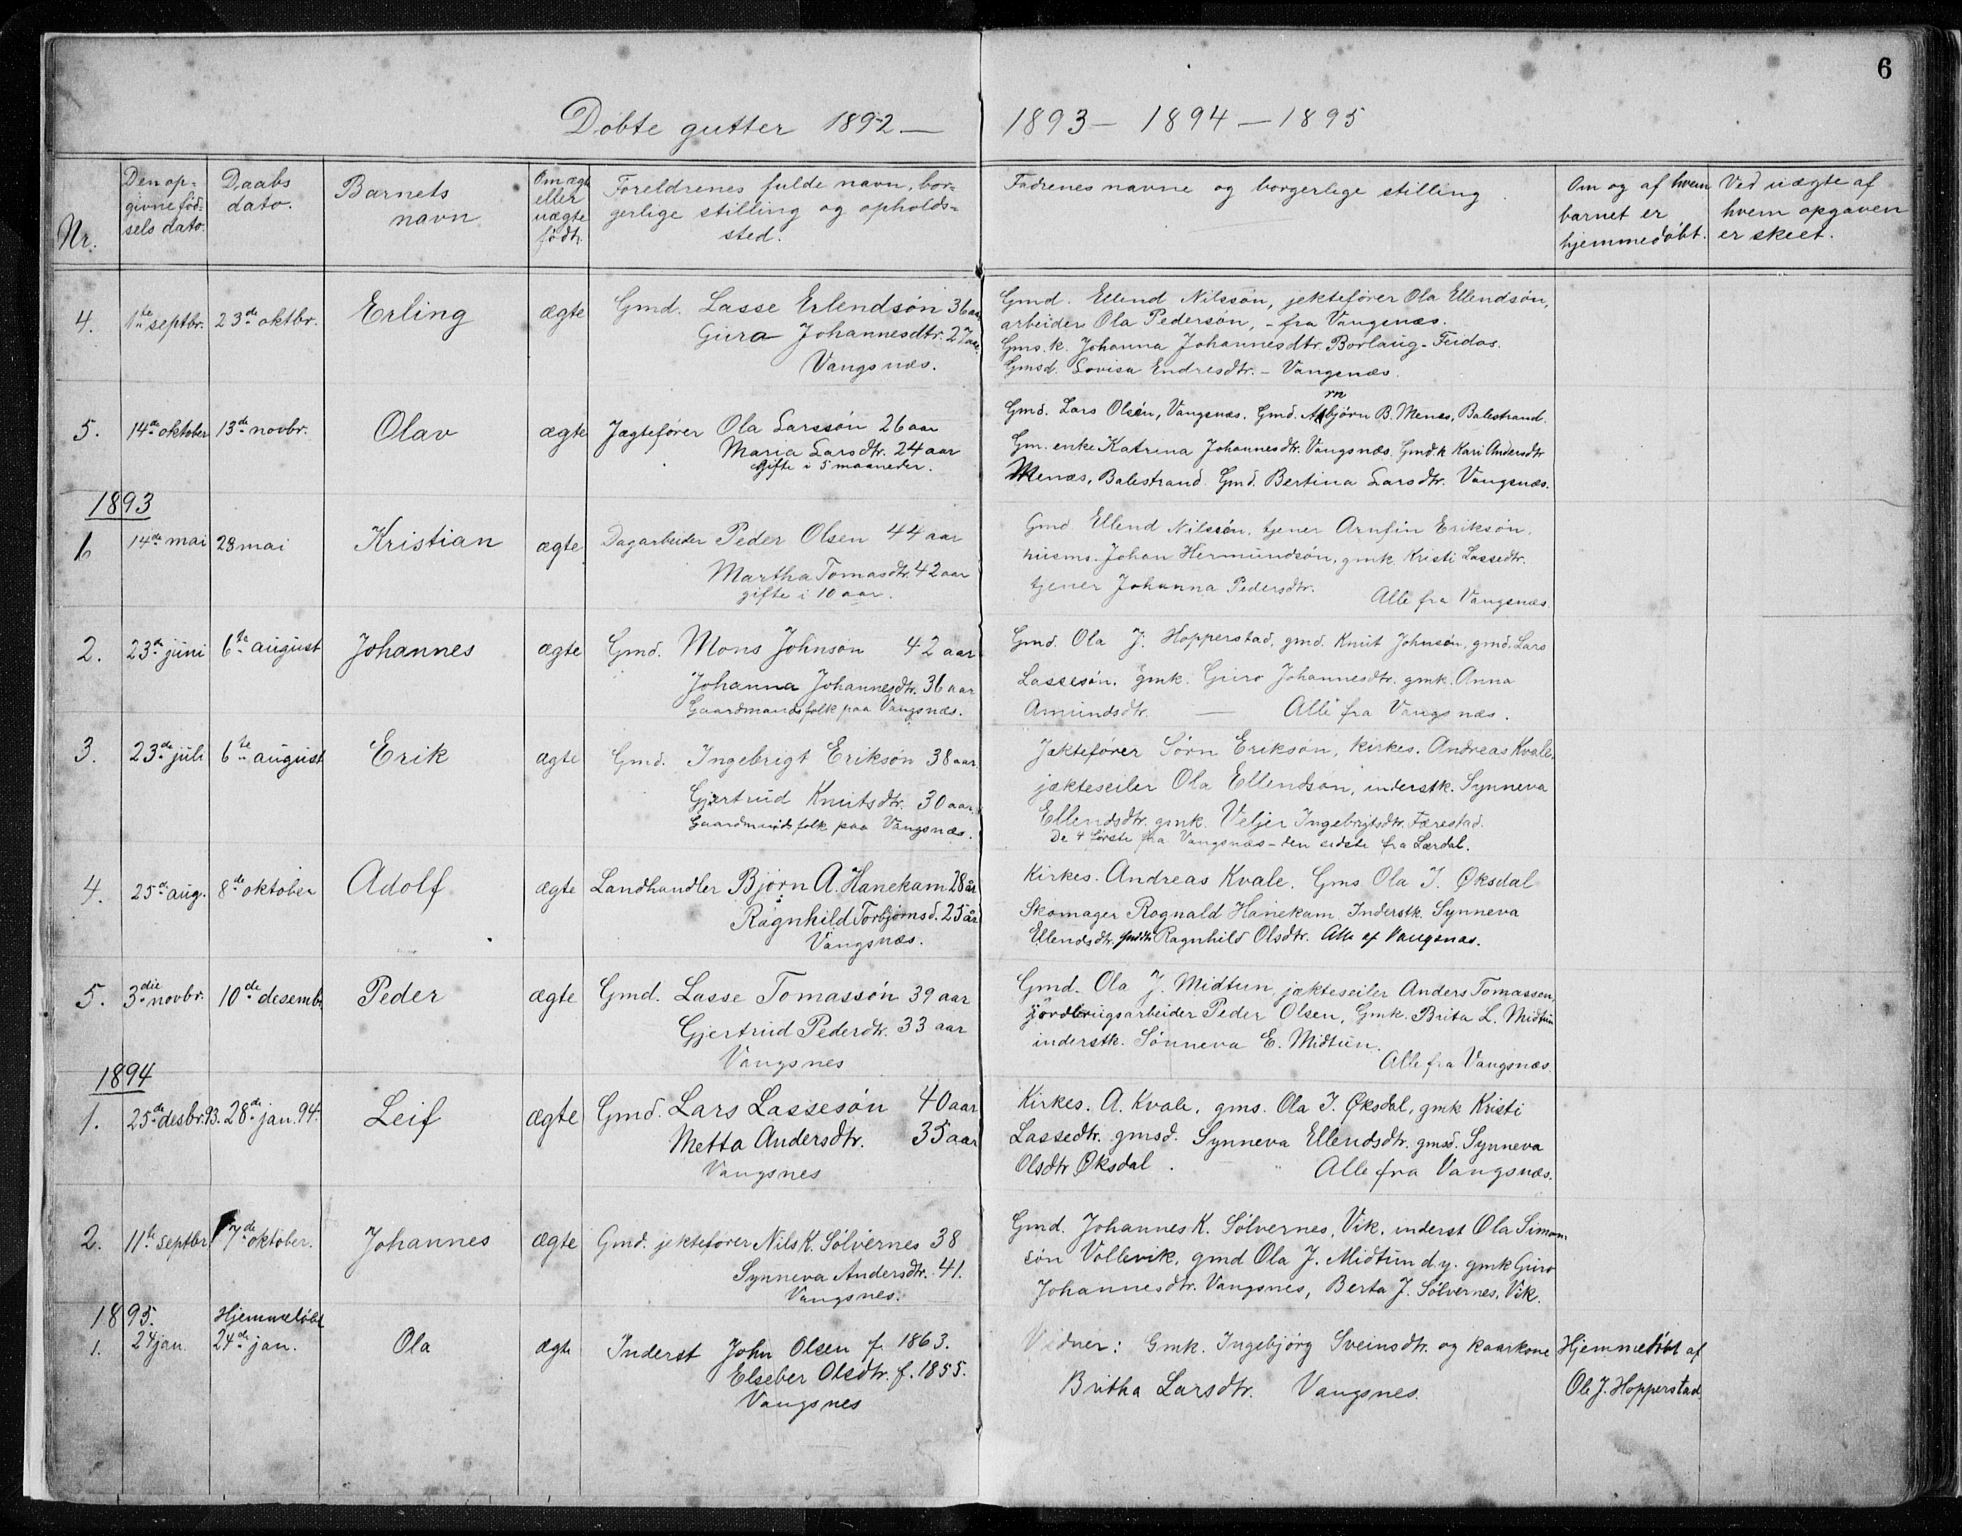 6
Døbte gutter 1892 — 1893 — 1894 — 1895
Nr.
Den op-
givne fød-
sels dato.
Daabs
dato.
Barnets
navn
Om ægte
eller
uægte
født.
Foreldrenes fulde navn, bor-
gerlige stilling og opholds-
sted.
Fadrenes navne og borgerlige stilling.
Om og af hvem
barnet er
hjemmedøbt.
Ved uægte af
hvem opgaven
er skeet.
4. 1ste septbr. 23de oktbr. Erling ægte Gmd. Lasse Erlendsøn 36 aar
Gúra Johannesdtr. 27 aar.
Vangsnæs.
Gmd. Ellend Nilssøn, jektefører Ola Ellendsøn,
arbeider Ola Pedersøn, - fra Vangsnæs.
Gms. k. Johanna Johannesdtr. Borlaug - Feidos.
Gmsd. Lovisa Endresdtr. - Vangsnæs.
5. 14de oktober 13de novbr. Olav ægte Jægtefører Ola Larssøn 26 aar
Maria Larsdtr. 24 aar
Gifte i 5 maaneder.
Gmd. Lars Olsén, Vangsnæs. Gmd. Arnbjörn B. Menes, Balestrand.
Gm. enke Katrina Johannesdtr. Vangsnæs. Gmd. k Kari Andersdtr
Menæs, Balestrand. Gmd. Bertina Larsdtr. Vangsnæs.
1893
1 14de mai 28 mai Kristian ægte Dagarbeider Peder Olsen 44 aar
Martha Tomasdtr. 42 aar
gifte i 10 aar.
Gmd. Ellend Nilssön, tjener Arnfin Eriksøn,
húsms. Johan Hermúndsøn, gmk. Kristi Lassedtr.
tjener Johanna Pedersdtr.
Alle fra Vangsnæs.
2. 23de juni 6te august Johannes ægte Gmd. Mons Johnsøn 42 aar
Johanna Johannesdtr. 36 aar
Gaardmandsfolk paa Vangsnæs.
Gmd. Ola J. Hopperstad, gmd. Knut Johnsön, gmd. Lars
Lassesön, gmk. Guro Johannesdtr. gmk. Anna
Amúndsdtr. — Alle fra Vangsnæs.
3. 23de juli 6te august Erik ægte Gmd. Ingebrigt Eriksøn 38 aar.
Gjertrud Knutsdtr. 30 aar.
Gaardmandsfolk paa Vangsnæs.
Jæktefører Sørn Eriksøn, Kirkes. Andreas Kvale,
jækteseiler Ola Ellendsøn, inderstk. Synneva
Ellendsdtr. gmk. Veljer Ingebrigtsdtr. Færestad.
De 4 første fra Vangsnæs - den sidste fra Lærdal.
4. 25de aug. 8de oktober Adolf ægte Landhandler Bjørn A. Hanekam 28 år
Ragnhild Torbjørnsd. 25 år
Vangsnæs.
Kirkes. Andreas Kvale. Gms Ola I. Øksdal
Skomager Rognald Hanekam Inderstk. Synneva
Ellendsdtr. Ragnhild Olsdtr. Alle af Vangsnæs.
5. 3die novbr. 10de desemb. Peder ægte Gmd. Lasse Tomassön 39 aar
Gjertrud Pederdtr. 33 aar
Vangsnes
Gmd. Ola J. Midtun, jækteseiler Anders Tomassen,
jordbrugsarbeider Peder Olsen, Gmk. Brita L. Midtun
inderstk. Sönneva E. Midtún.
Alle fra Vangsnæs.
1894
1. 25de desbr. 93. 28de jan. 94. Leif ægte Gmd. Lars Lassesøn 40 aar
Metta Andersdtr. 35 aar
Vangsnes
Kirkes. A. Kvale, gms. Ola I. Øksdal, gmk Kristi
Lassedtr. gmsd. Synneva Ellendsdtr. gmsd. Synneva
Olsdtr Øksdal. Alle fra Vangsnæs.
2. 11te septbr 7de oktober. Johannes ægte Gmd. jektefører Nils K. Sølvernes 38
Synneva Andersdtr. 41.
Vangsnes.
Gmd. Johannes K. Sølvernes, Vik, inderst Ola Simon-
søn Vollevik, gmd Ola J. Midtun d.y. gmk Guro
Johannesdtr. Vangsnes, Berta J. Sølvernes, Vik.
1895. Hjemmedøbt
1. 24 jan. 24de jan. Ola ægte Inderst John Olsen f. 1863.
Elseber Olsdtr. f. 1855.
Vangsnes
Vidner: Gmk. Ingebjørg Sveinsdtr. og kaarkone
Britha Larsdtr. Vangsnes.
Hjemmedøbt af
Ole J. Hopperstad.